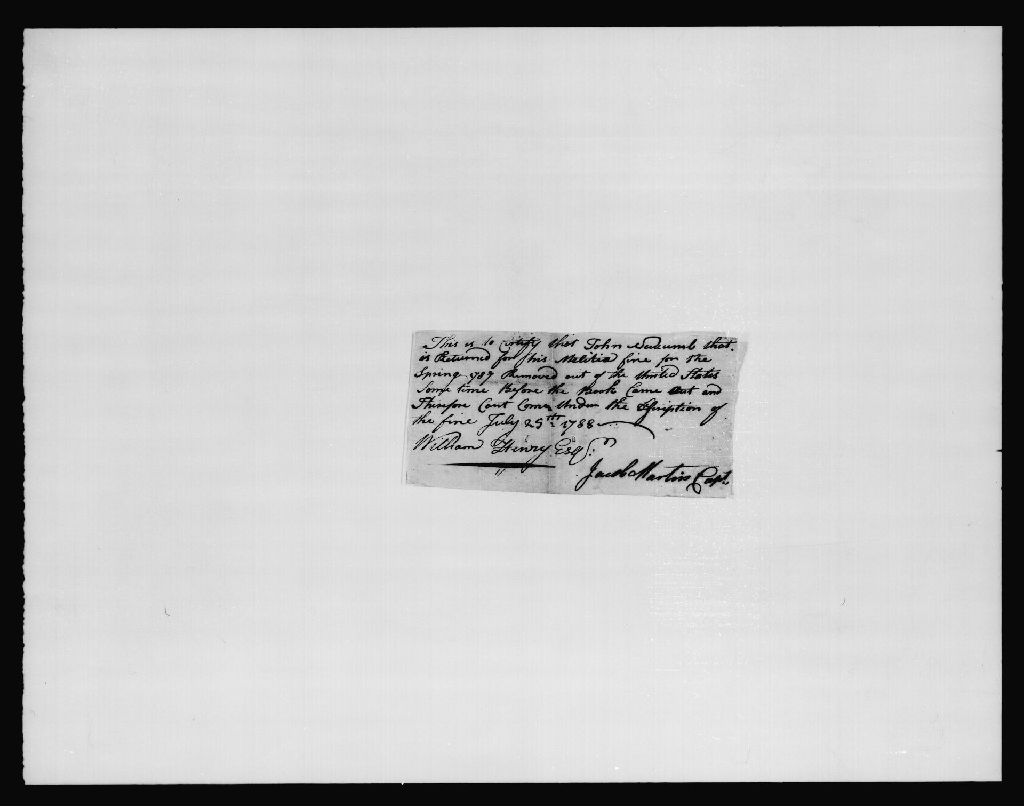 This is to certify that John that
is Returned for his Melitia fine for the
Spring 1787 Removed out of the United States
Some time Before the Came Out and
Therefore Cant Come Under the of
the fine July 25th 1788
William Henry Esqr.
Jacob Martin Capt.